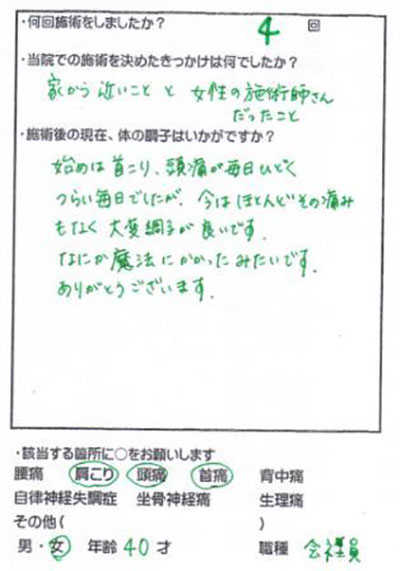 ・何回施術をしましたか？ 4 回
・当院での施術を決めたきっかけは何でしたか？
家から近いことと女性の施術師さん
だったこと
・施術後の現在、体の調子はいかがですか？
始めは首こり、頭痛が毎日ひどく
つらい毎日でしたが、今はほとんどその痛み
もなく大変調子が良いです。
なにか魔法にかかったみたいです。
ありがとうございます。
・該当する箇所に○をお願いします
腰痛 肩こり 頭痛 首痛 背中痛
自律神経失調症 坐骨神経痛 生理痛
その他( )
男・女 年齢 40 才 職種 会社員